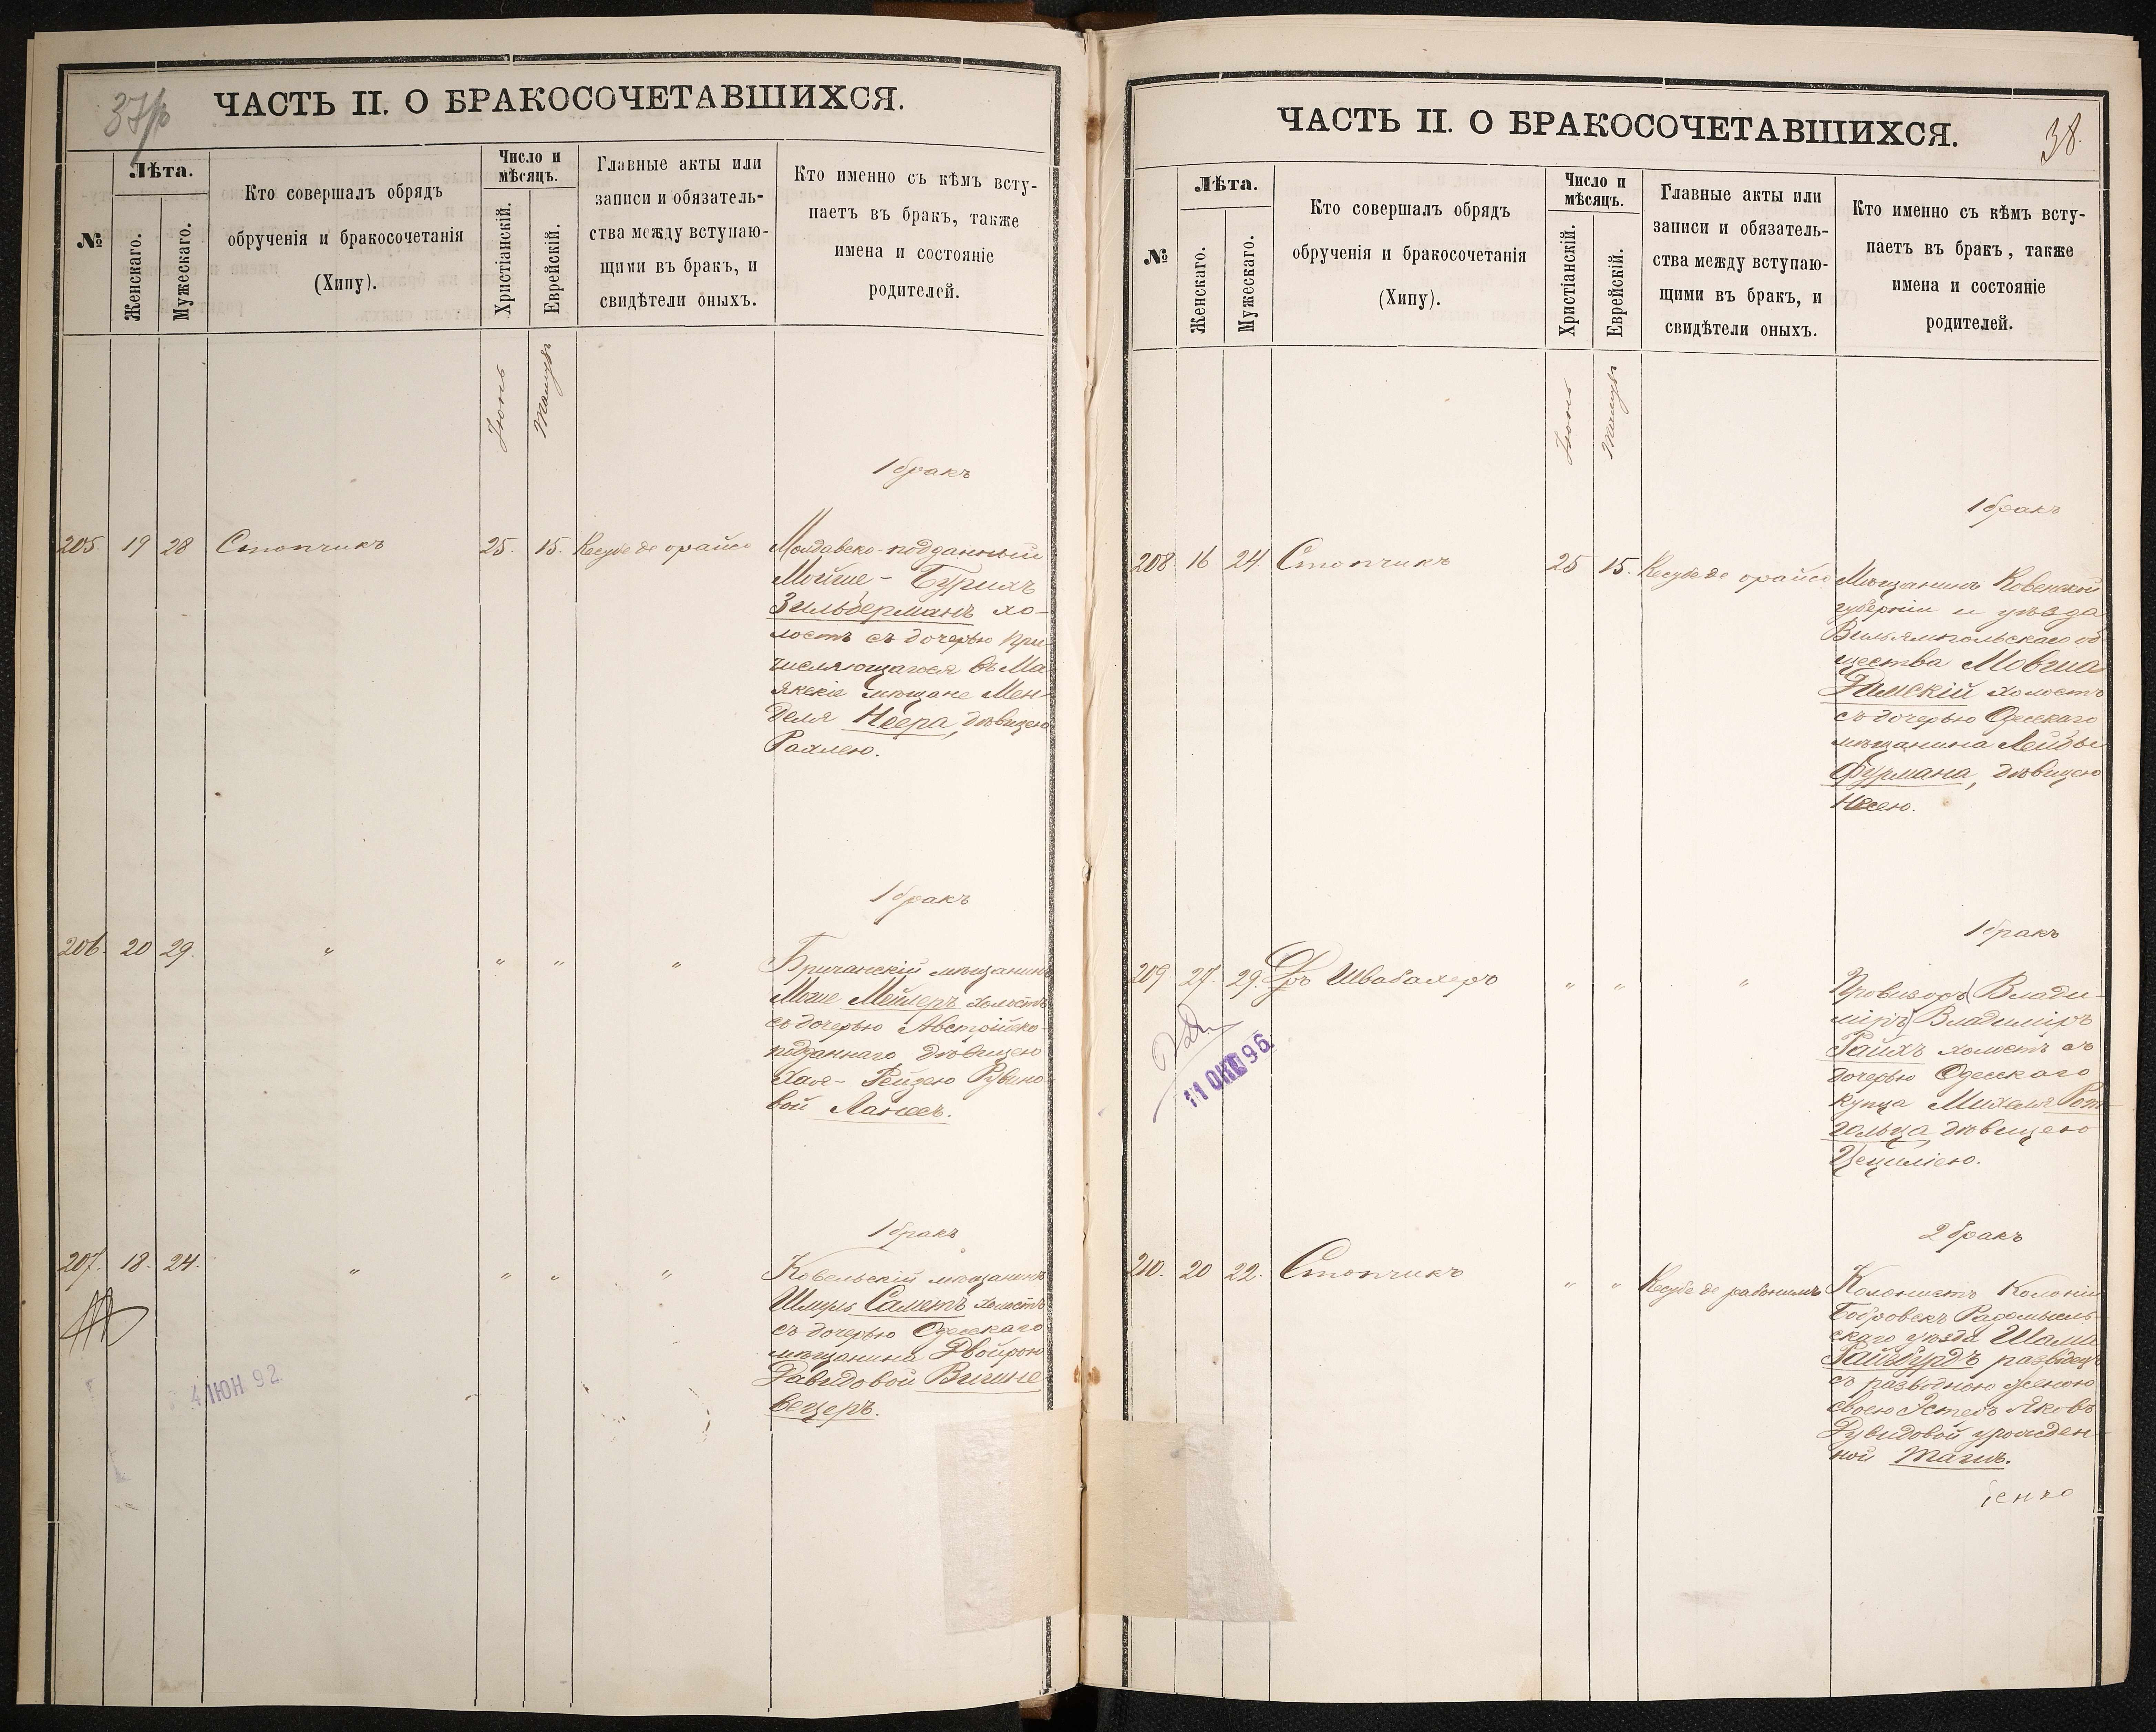 37
ЧАСТЬ II. О БРАКОСОЧЕТАВШИХСЯ.
№
Лѣта.
Женскаго.
Мужескаго.
Кто совершалъ обрядъ
обрученія и бракосочетанія
(Хипу).
Число и
мѣсяцъ.
Христіанскій.
Еврейскій.
Главные акты или
записи и обязатель-
ства между вступаю-
щими въ бракъ, и
свидѣтели оныхъ.
Кто именно съ кѣмъ всту-
паетъ въ бракъ, также
имена и состояніе
родителей.
Іюнь
Тамузъ
1 бракъ
205. 19 28 Стопчикъ 25. 15. Кесубе де орайсо
Молдавско-подданный
Мойше-Бурихъ
Зильберманъ хо-
лостъ съ дочерью При-
числяющагося въ Ма-
якскіе мѣщане Мен-
деля Неера, дѣвицею
Рахлею.
1 бракъ
206. 20 29. " " " "
Бричанскій мѣщанинъ
Моше Мейлеръ холостъ
съ дочерью Австрійско-
подданнаго дѣвицею
Хае-Рейзею Рувино-
вой
1 бракъ
207. 18. 24. " " " "
Ковельскій мѣщанинъ
Шмуль Саметъ холостъ
съ дочерью Одесскаго
мѣщанина Двойрою
Давидовой Вишне-
вецеръ.
4 ІЮН 92
ЧАСТЬ II. О БРАКОСОЧЕТАВШИХСЯ.
38.
№
Лѣта.
Женскаго.
Мужескаго.
Кто совершалъ обрядъ
обрученія и бракосочетанія
(Хипу).
Число и
мѣсяцъ.
Христіанскій.
Еврейскій.
Главные акты или
записи и обязатель-
ства между вступаю-
щими въ бракъ, и
свидѣтели оныхъ.
Кто именно съ кѣмъ всту-
паетъ въ бракъ, также
имена и состояніе
родителей.
Іюнь
Тамузъ
1 бракъ
208. 16 24. Стопчикъ 25 15. Кесубе де орайсо
Мѣщанинъ Ковенской
губерніи и уѣзда
Вильямпольскаго об-
щества Мовша
Римскій холостъ
съ дочерью Одесскаго
мѣщанина Лейзы
Фурмана, дѣвицею
Несею.
1 бракъ
209. 27. 29. Д-ръ Швабахеръ " " "
Провизоръ (Влади-
міръ) Владиміръ
Райхъ холостъ съ
дочерью Одесскаго
купца Михеля Рот-
гольца, дѣвицею
Цециліею.
11 ОКТ 96
2 бракъ
210. 20 22. Стопчикъ " " Кесубе де рабонимъ
Колонистъ Колоніи
Радомысль-
скаго уѣзда
Райбурдъ разведецъ
съ разводною женою
своею Яковъ-
Дувидовой урожден-
ной